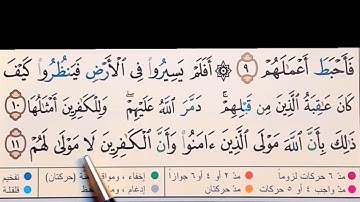 فَأَحْبَطَ أَعْمَٰلَهُمْ ٩ ۞ أَفَلَمْ يَسِيرُوا۟ فِى ٱلْأَرْضِ فَيَنظُرُوا۟ كَيْفَ
كَانَ عَٰقِبَةُ ٱلَّذِينَ مِن قَبْلِهِمْ ۚ دَمَّرَ ٱللَّهُ عَلَيْهِمْ ۖ وَلِلْكَٰفِرِينَ أَمْثَٰلُهَا ١٠
ذَٰلِكَ بِأَنَّ ٱللَّهَ مَوْلَى ٱلَّذِينَ ءَامَنُوا۟ وَأَنَّ ٱلْكَٰفِرِينَ لَا مَوْلَىٰ لَهُمْ ١١
مدّ ٦ حركات لزوماً مدّ ٢ أو ٤ أو ٦ جوازاً إخفاء، ومواقع (حركتان) تفخيم
مدّ واجب ٤ أو ٥ حركات مدّ حركتان إدغام، وما يُلفظ قلقلة